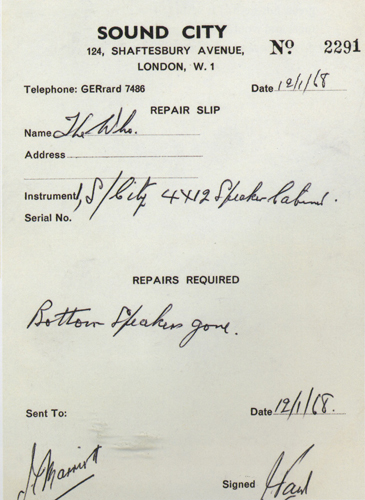 SOUND CITY
124, SHAFTESBURY AVENUE,
LONDON, W. 1
Nº 2291
Telephone: GERrard 7486
Date 12/1/68
REPAIR SLIP
Name The Who.
Address
Instrument 1, S/City 4X12 Speaker Cabinet.
Serial No.
REPAIRS REQUIRED
Bottom Speakers gone.
Sent To:
Date 12/1/68.
Signed